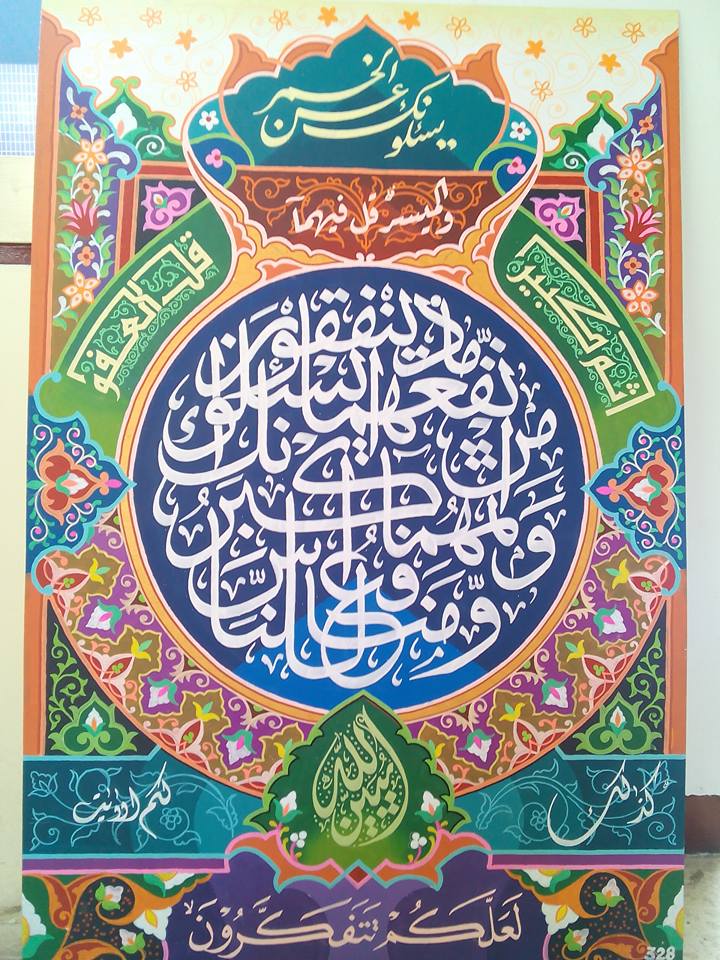 يسـٔلونك عن الخمر
والميسر قل فيهمآ
اثم كبير
وّمنافع للناس واثمهمآ اكبر من نّفعهما ويسـٔلونك ماذا ينفقون
قل العفو
كذلك
يبيّن اللّه
لكم الاٰيٰت
لَعَلَّكُمْ تَتَفَكَّرُوْنَ
328